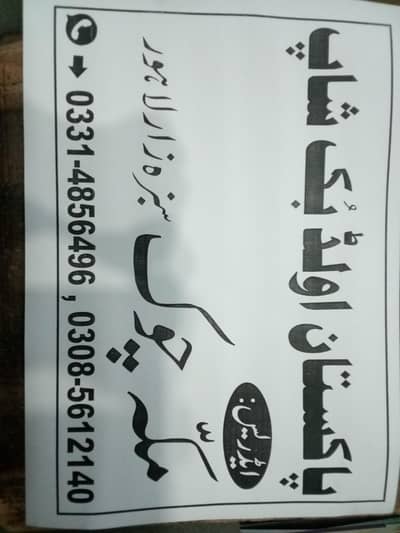 پاکستان اولڈ بُک شاپ
ایڈریس:
مکّہ چوک سبزہ زار لاہور
0331-4856496 , 0308-5612140